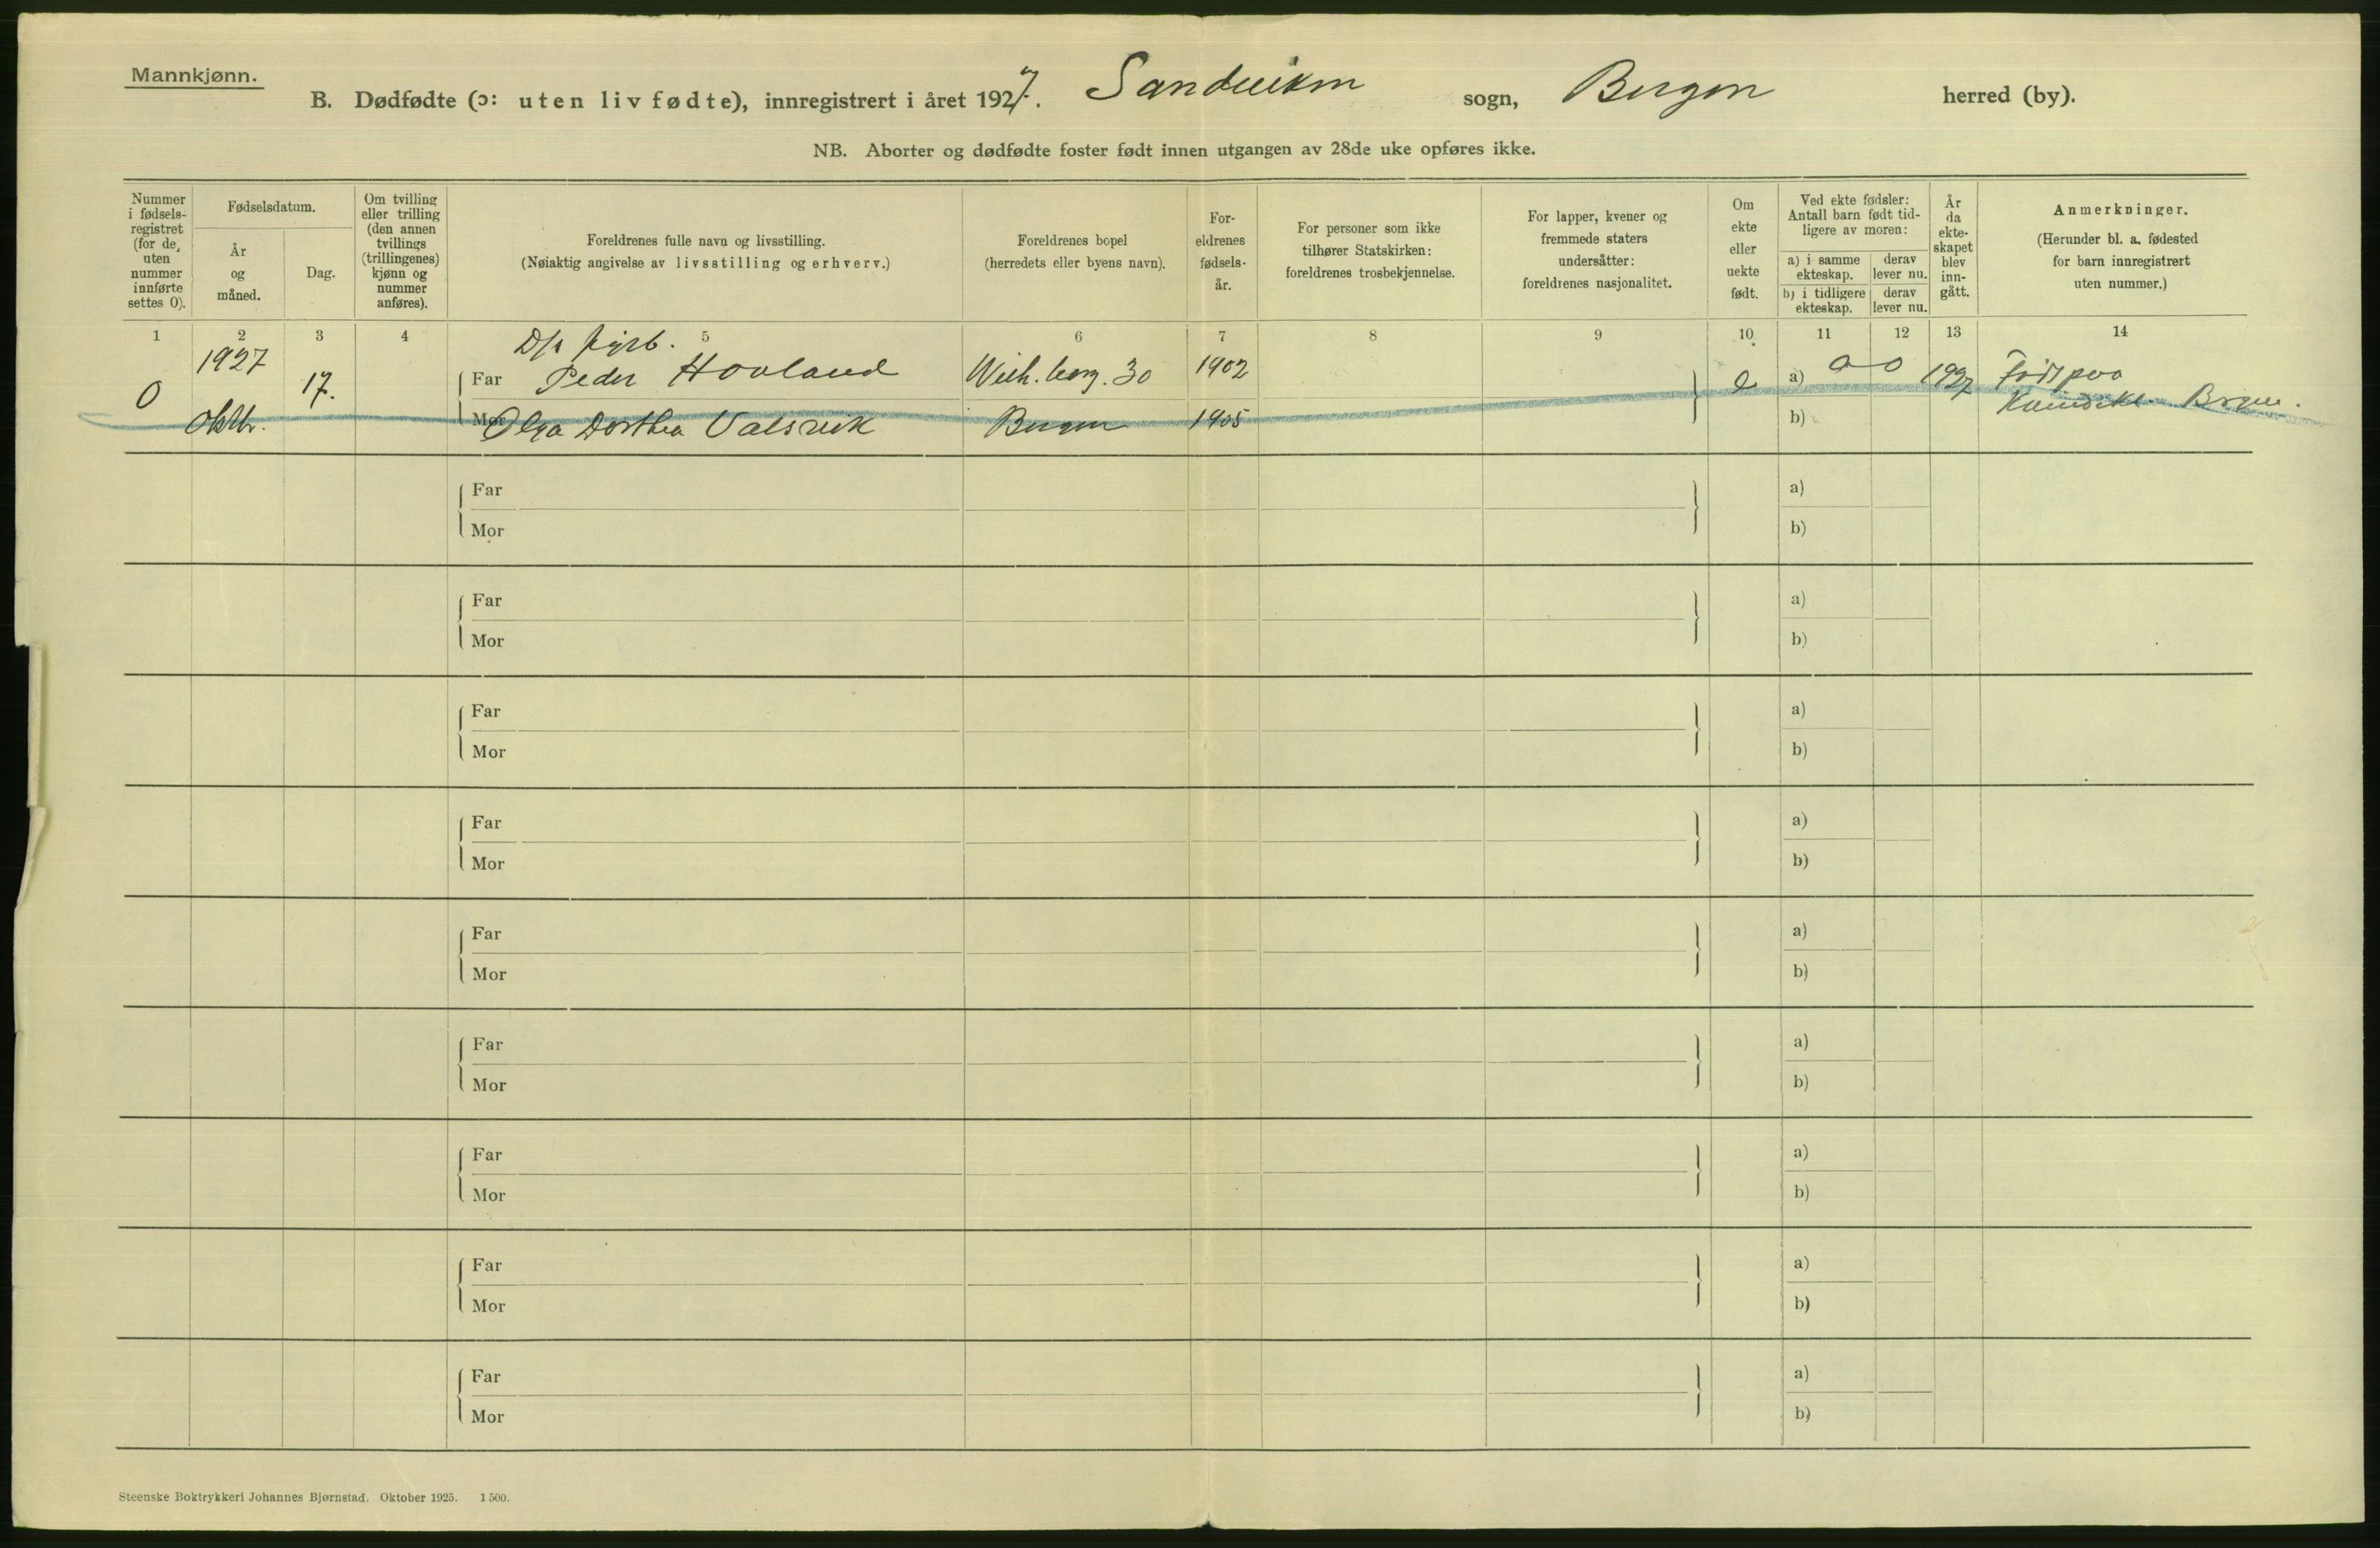 Mannkjønn.
B. Dødfødte (ɔ: uten liv fødte), innregistrert i året 1927. Sandviken sogn, Bergen herred (by).
NB. Aborter og dødfødte foster født innen utgangen av 28de uke opføres ikke.
Nummer i fødsels-registret (for de uten nummer innførte settes 0).
Fødselsdatum.
År og måned.
Dag.
Om tvilling eller trilling (den annen tvillings (trillingenes) kjønn og nummer anføres).
Foreldrenes fulle navn og livsstilling.
(Nøiaktig angivelse av livsstilling og erhverv.)
Foreldrenes bopel
(herredets eller byens navn).
For-eldrenes fødsels-år.
For personer som ikke tilhører Statskirken: foreldrenes trosbekjennelse.
For lapper, kvener og fremmede staters undersåtter: foreldrenes nasjonalitet.
Om ekte eller uekte født.
Ved ekte fødsler: Antall barn født tid-ligere av moren:
a) i samme ekteskap.
derav lever nu.
b) i tidligere ekteskap.
derav lever nu.
År da ekte-skapet blev inn-gått.
Anmerkninger.
(Herunder bl. a. fødested for barn innregistrert uten nummer.)
1 2 3 4 5 6 7 8 9 10 11 12 13 14
D/s fyrb.
0 1927 17. Far Peder Hovland Wilh. berg. 30 1902 e a) 0 0 1927 Født paa
Oktbr. Mor Olga Dorthea Valsvik Bergen 1905 b) Kvindekl. Bergen.
Far a)
Mor b)
Far a)
Mor b)
Far a)
Mor b)
Far a)
Mor b)
Far a)
Mor b)
Far a)
Mor b)
Far a)
Mor b)
Far a)
Mor b)
Far a)
Mor b)
Steenske Boktrykkeri Johannes Bjørnstad. Oktober 1925. 1500.